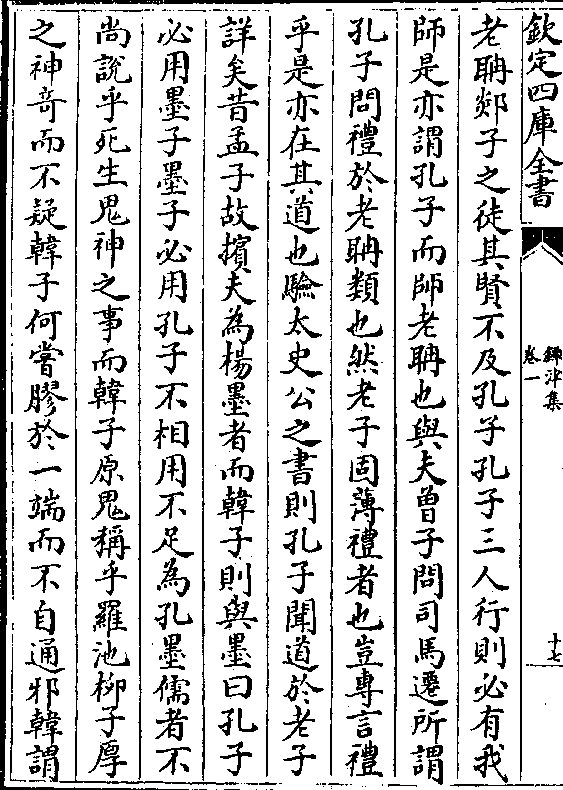 欽定四庫全書
鐔津集
卷一
十七
老聃郯子之徒其賢不及孔子孔子三人行則必有我
師是亦謂孔子而師老聃也與夫曾子問司馬遷所謂
孔子問禮於老聃類也然老子固薄禮者也豈專言禮
乎是亦在其道也驗太史公之書則孔子聞道於老子
詳矣昔孟子故擯夫為楊墨者而韓子則與墨曰孔子
必用墨子墨子必用孔子不相用不足為孔墨儒者不
尚說乎死生鬼神之事而韓子原鬼稱乎羅池柳子厚
之神奇而不疑韓子何嘗膠於一端而不自通邪韓謂